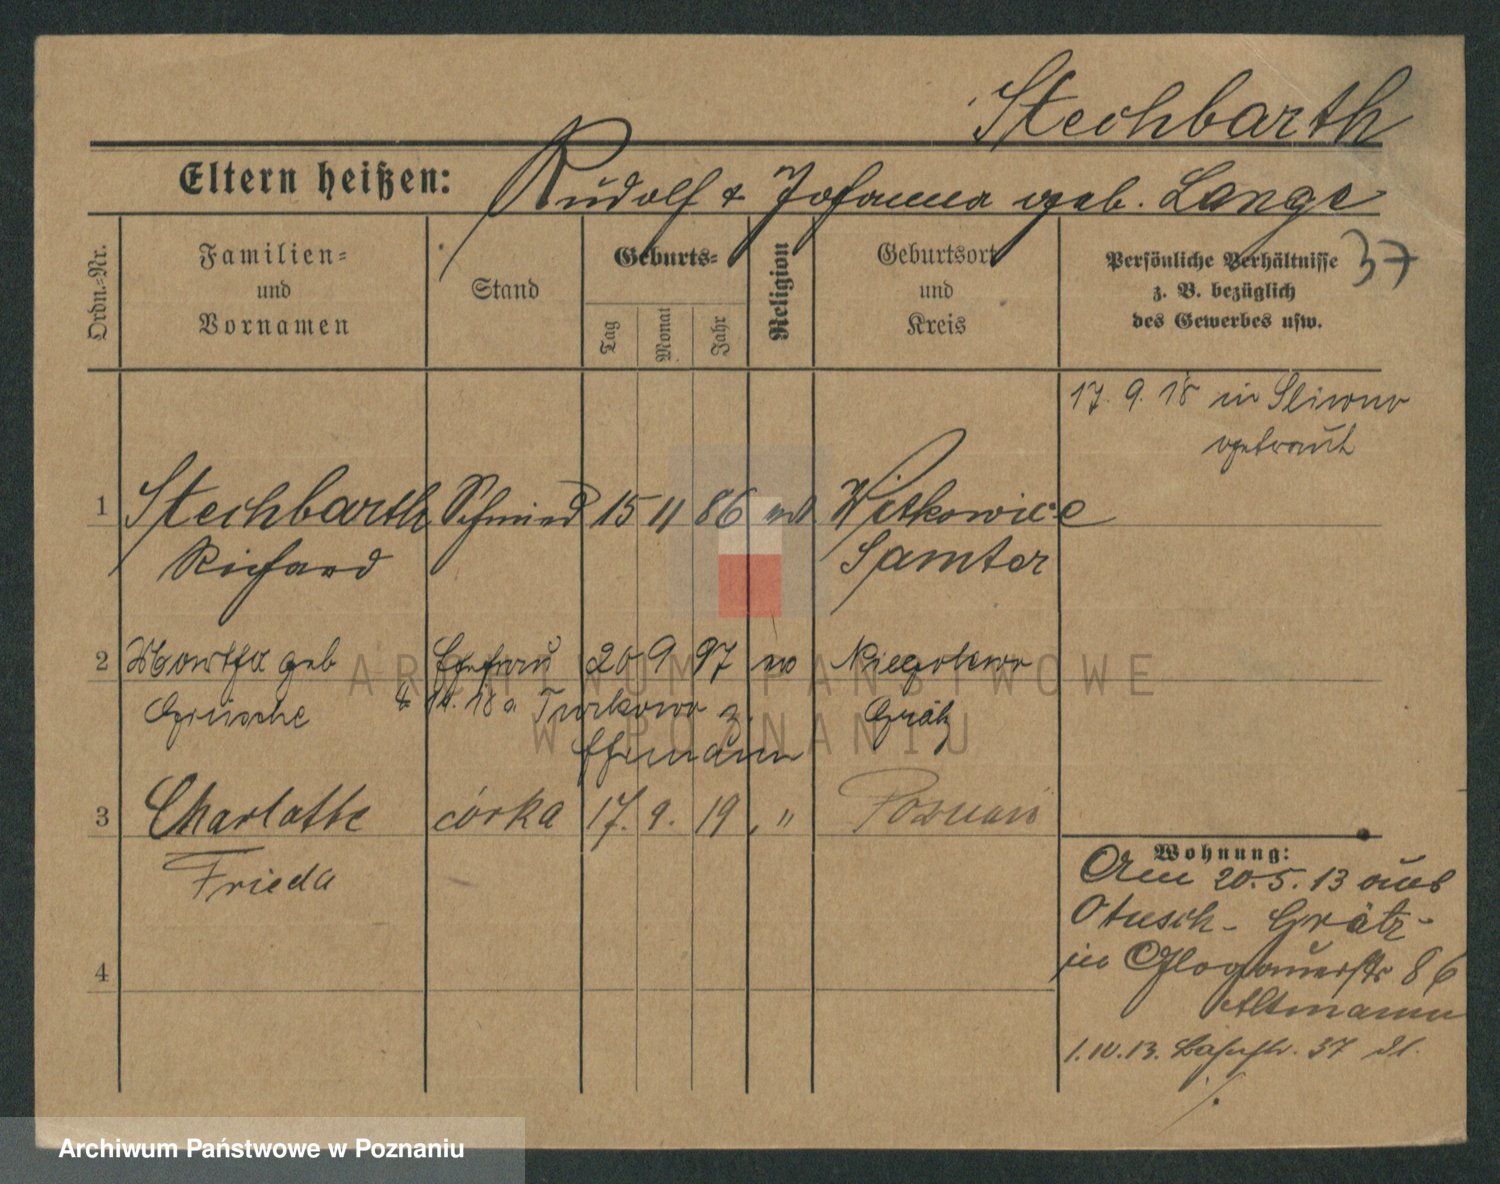 Stechbarth
Eltern heißen: Rudolf & Johanna geb. Lange
Ordn.-Nr.
Familien-
und
Vornamen
Stand
Geburts-
Tag
Monat
Jahr
Religion
Geburtsort
und
Kreis
Persönliche Verhältnisse
z. B. bezüglich
des Gewerbes usw.
37
17. 9. 18 in Sliwno
getraut
1 Stechbarth Schmied 15 11 86 Witkowice
Richard Samter
2 Martha geb Ehefrau 20 9 97 Niegolewo
18 a. Turkowo z.
Grätz
Ehemann
3 Charlotte córka 17. 9. 19 " Poznań
Frieda
4
Wohnung:
Am 20.5.13 aus
Otusch - Grätz -
in Glogauerstr 86
Altmann
1.10.13. 37
ARCHIWUM PAŃSTWOWE
W POZNANIU
Archiwum Państwowe w Poznaniu